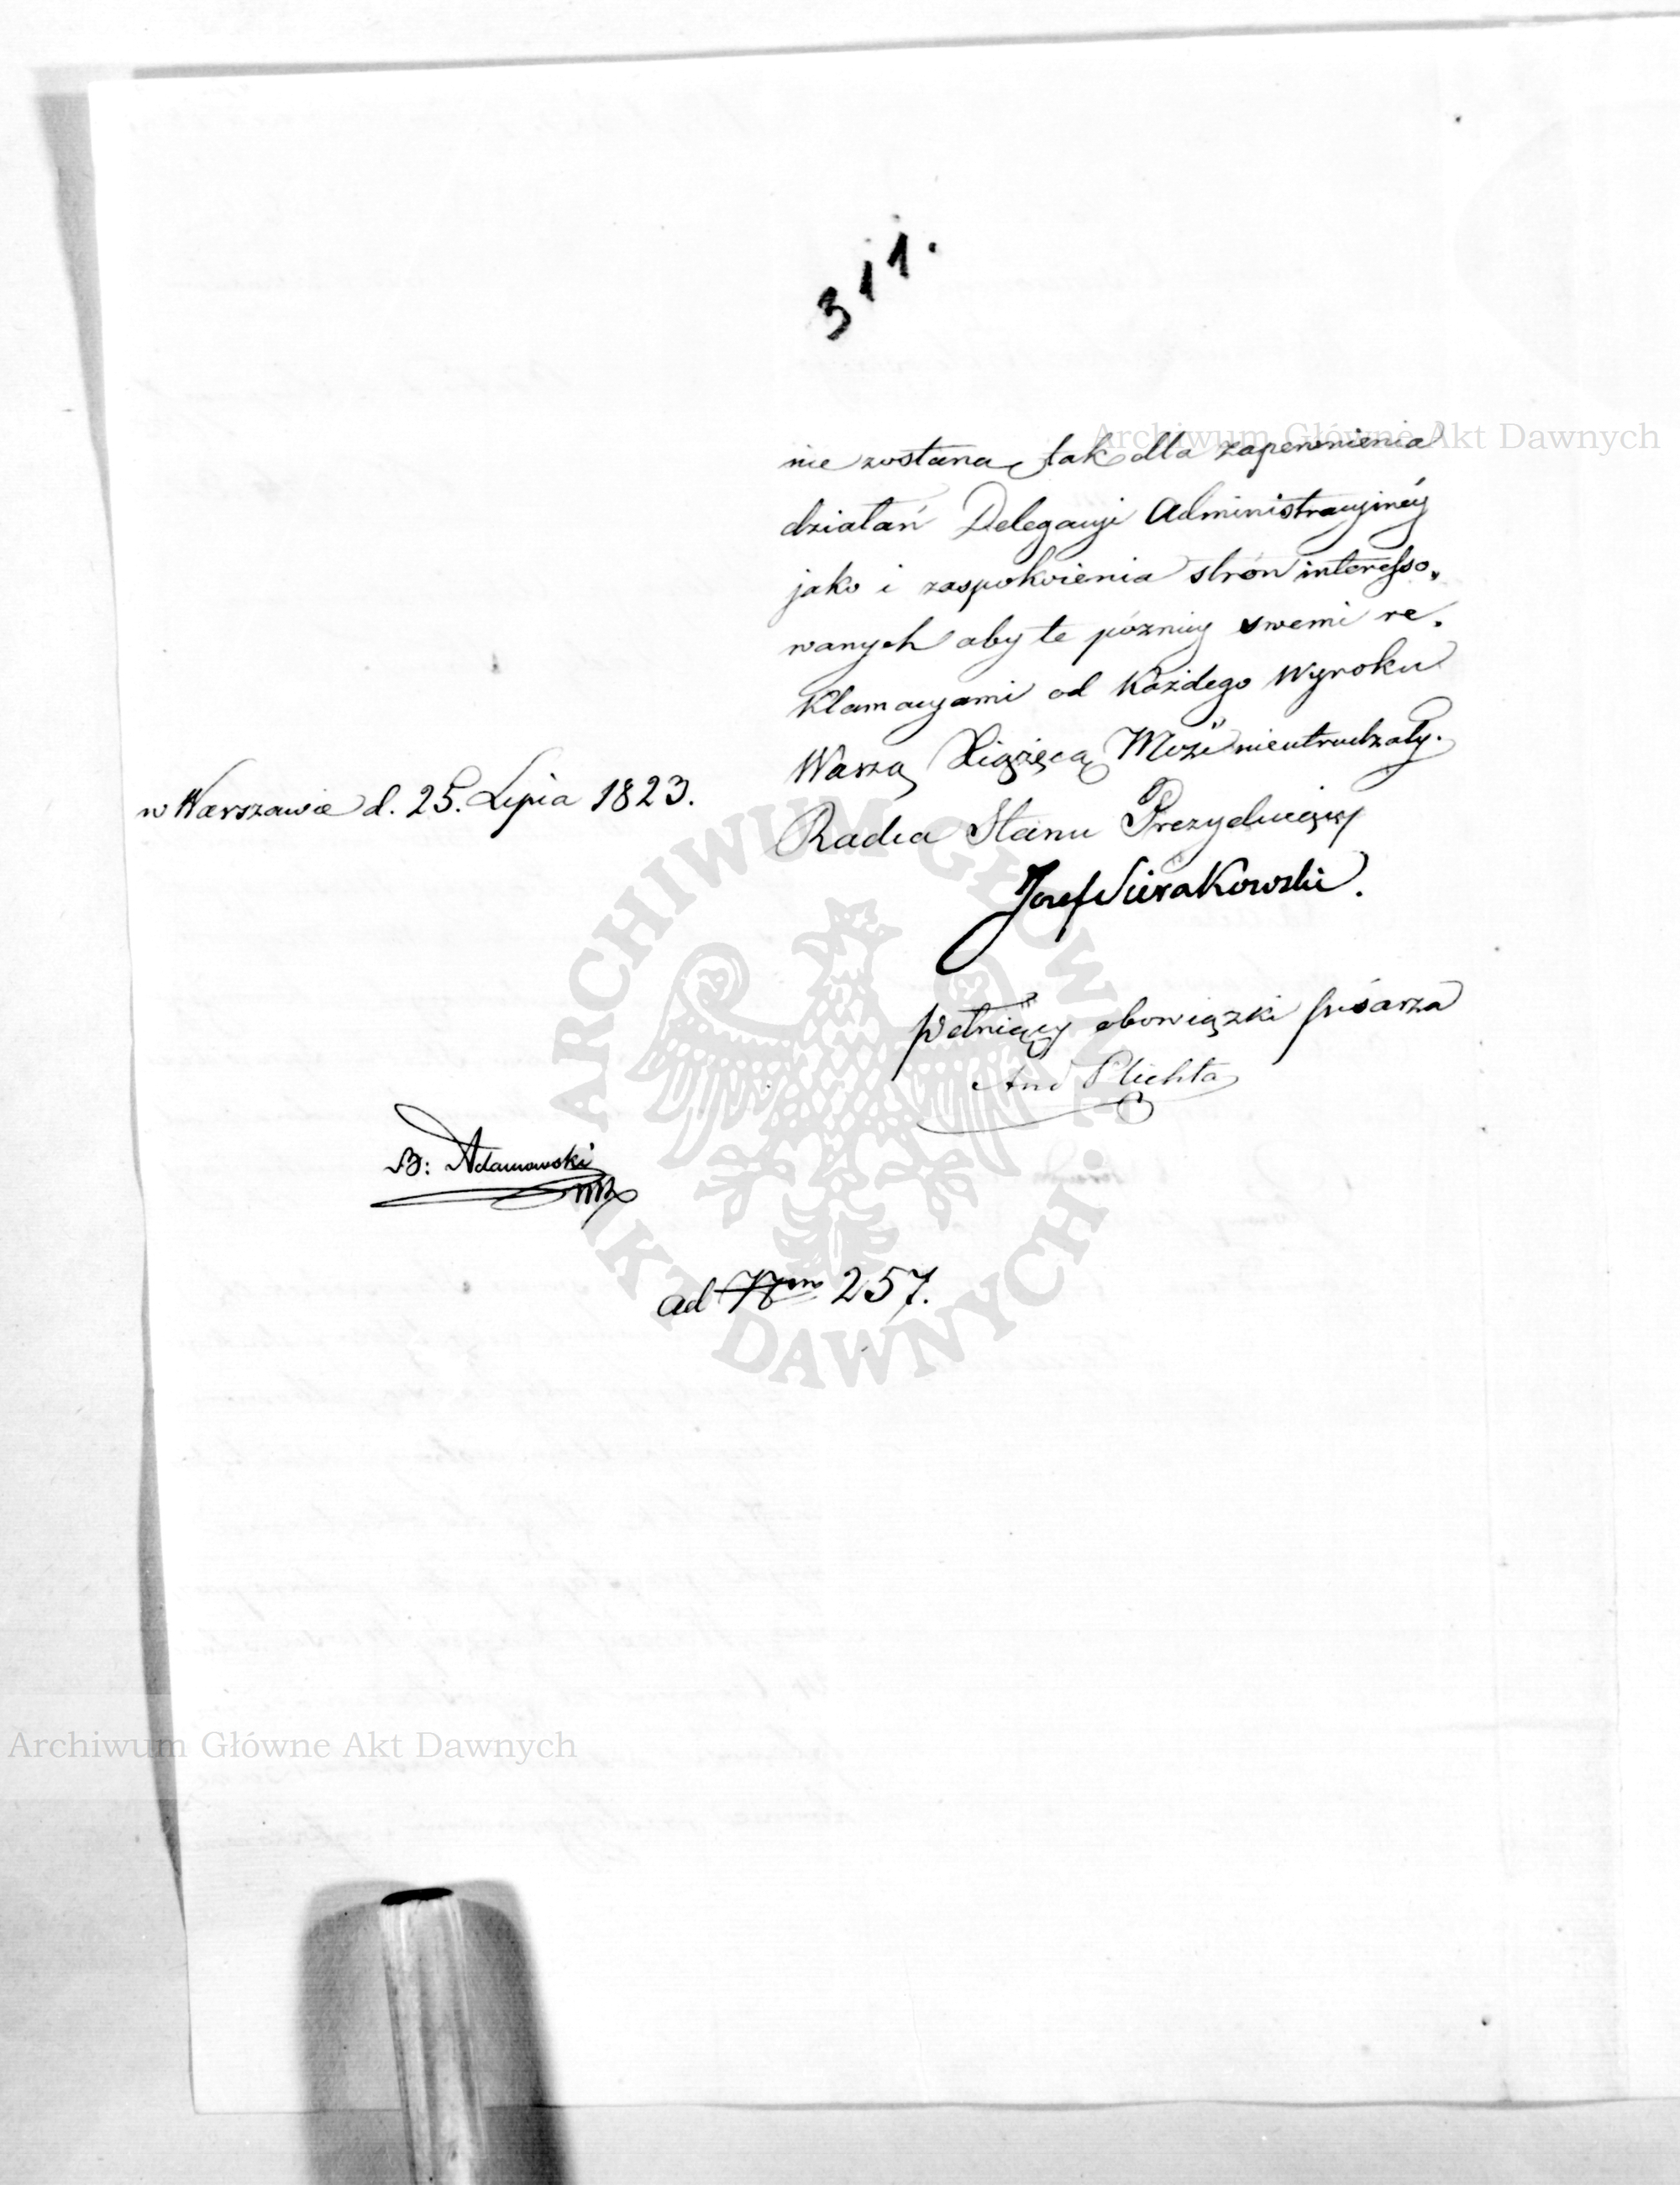 311.
nie zostaną, tak dla zapewnienia
działań Delegacyi Administracyinéy
jako i zaspokoienia strón interesso„
wanych aby te późniey swemi re„
klamacyami od każdego Wyroku
Waszą Xiążęcą Mość nieutrudzały.
w Warszawie d. 25. Lipca 1823.
Radca Stanu Prezyduiący
Józef Sierakowski.
pełniący obowiązki pisarza
And Plichta
B: Adamowski
mp
ad Nrm 257.
Archiwum Główne Akt Dawnych
ARCHIWUM GŁÓWNE AKT DAWNYCH
Archiwum Główne Akt Dawnych